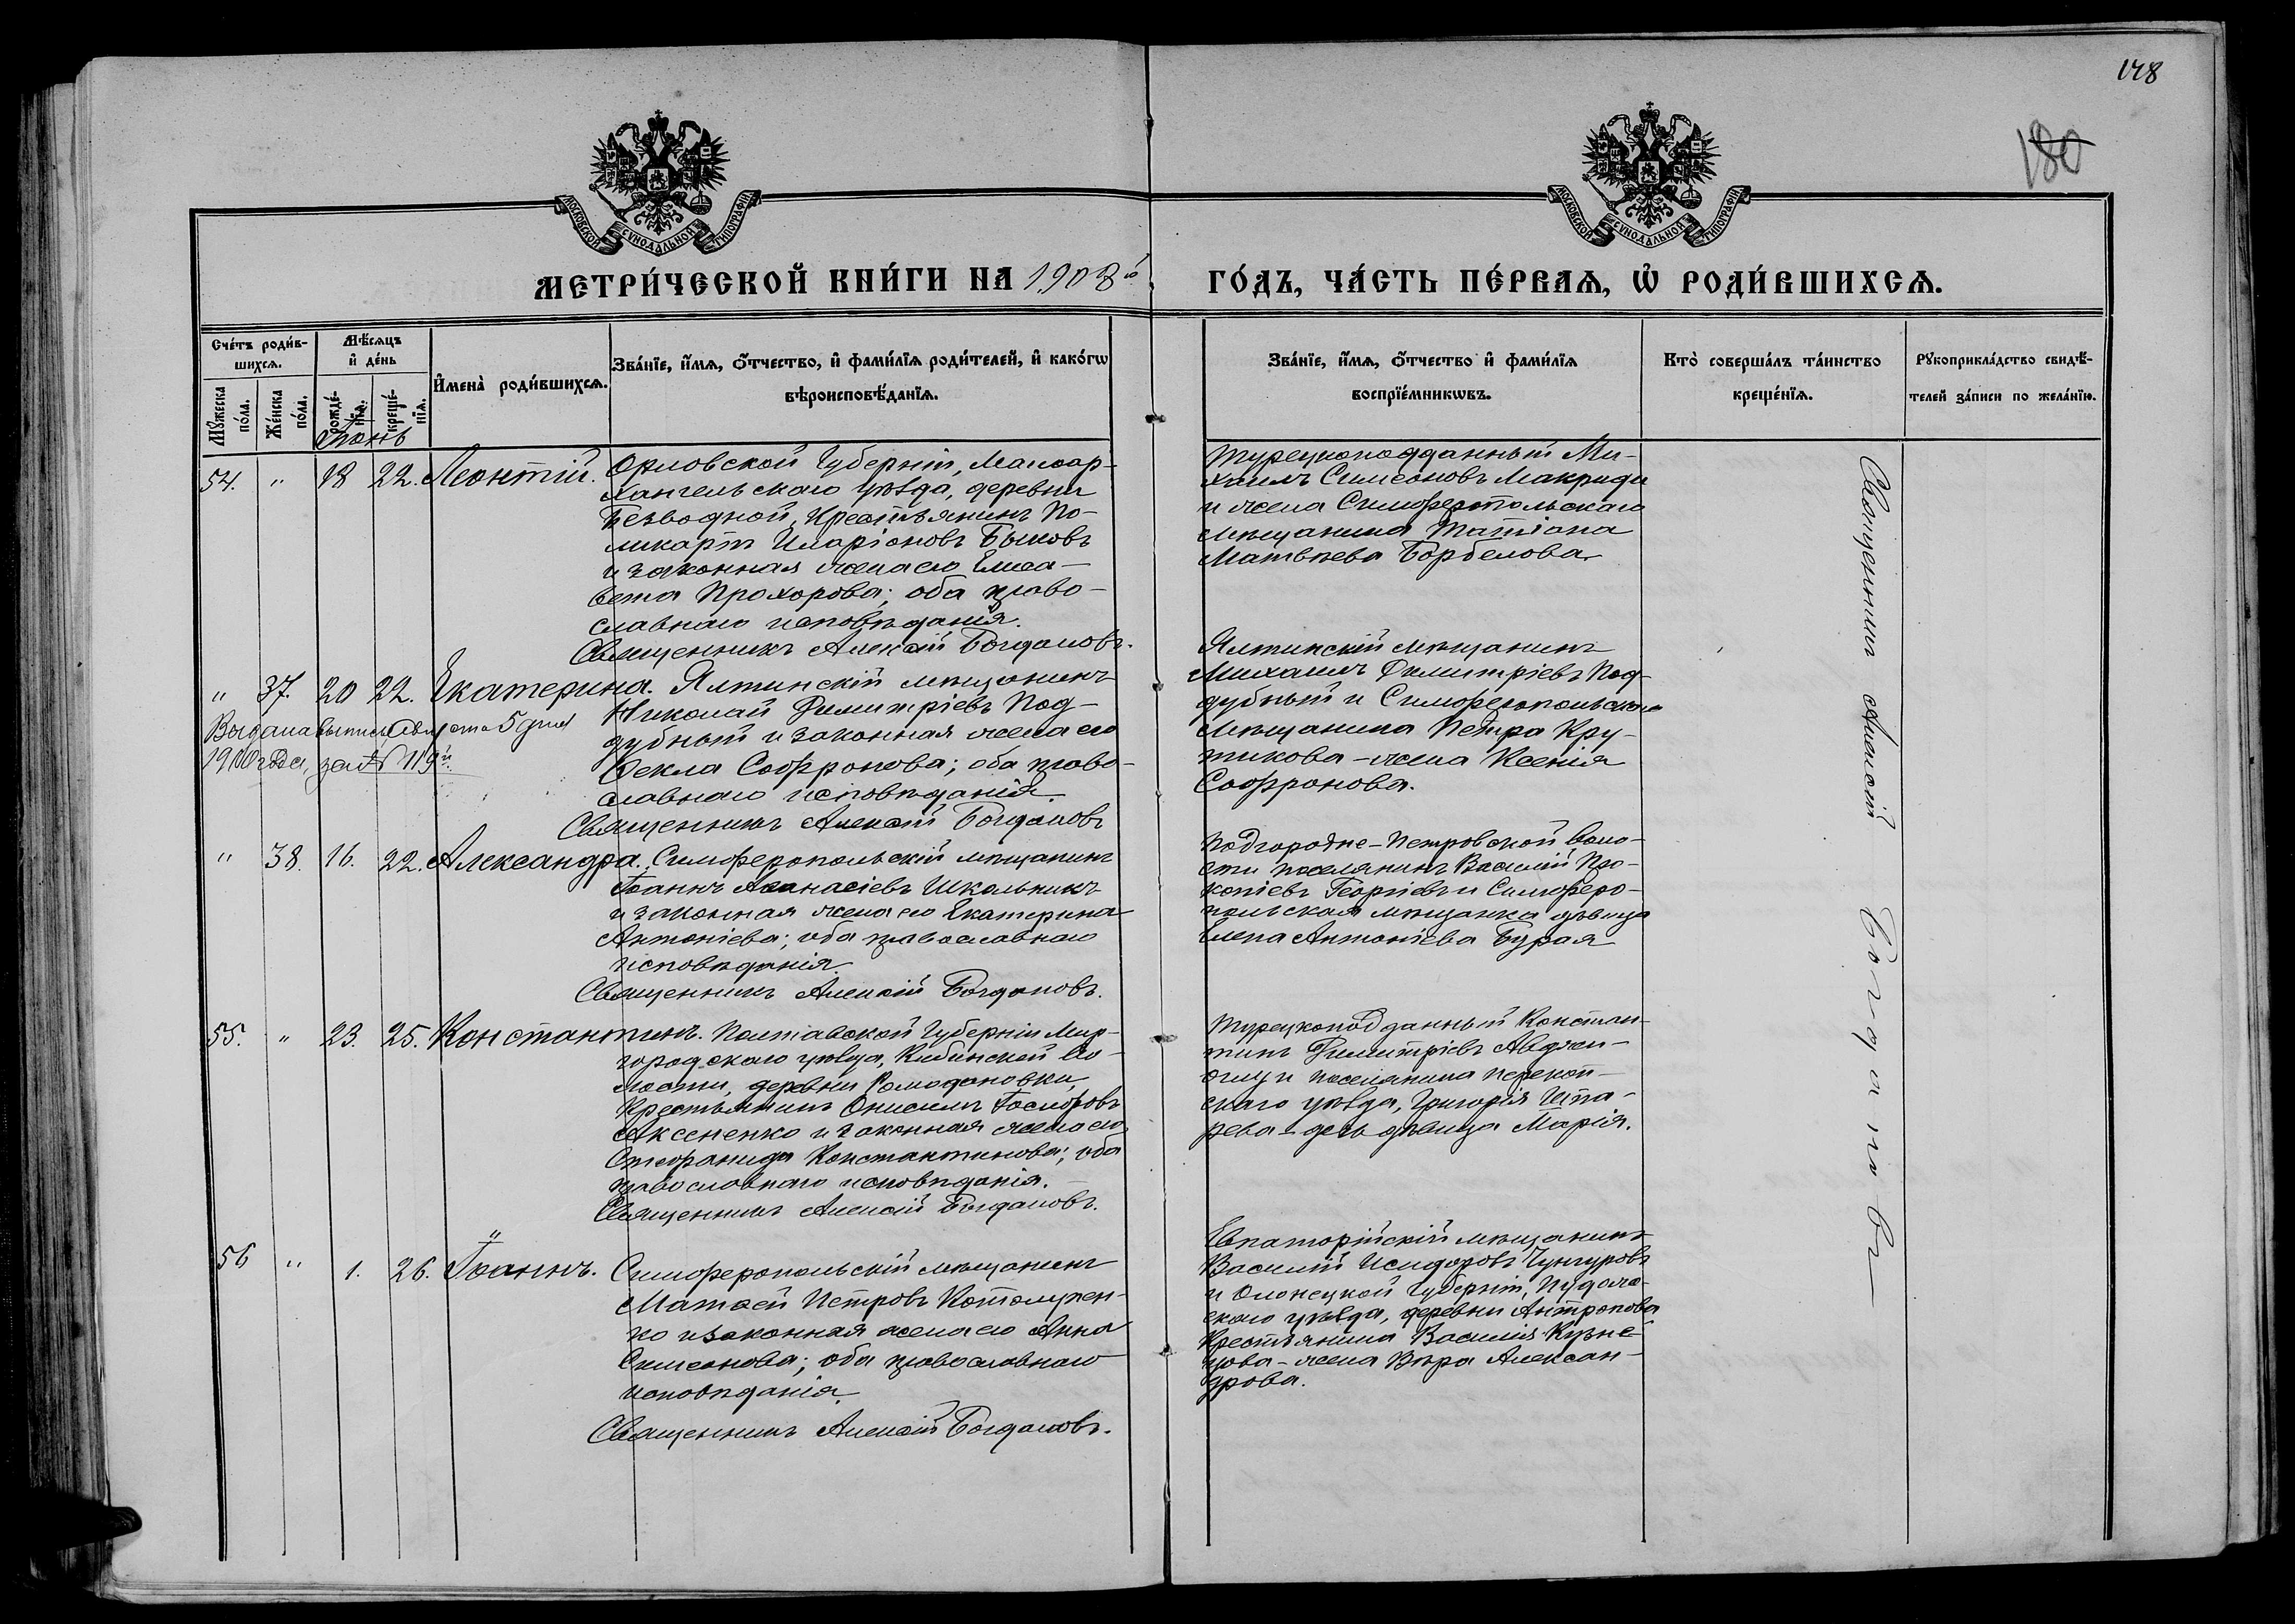 178
180
МОСКОВСКОЙ СѴНОДАЛЬНОЙ ТИПОГРАФІИ
МОСКОВСКОЙ СѴНОДАЛЬНОЙ ТИПОГРАФІИ
МЕТРИ́ЧЕСКОЙ КНИ́ГИ НА 1908й ГО́ДЪ, ЧА́СТЬ ПЕ́РВАѦ, Ѡ҆ РОДИ́ВШИХСѦ.
Сче́тъ роди́в-
шихсѧ.
Мꙋ́жеска по́ла.
Же́нска по́ла.
Мѣ́сѧцъ
и҆ де́нь
рожде́-
нїѧ.
креще́-
нїѧ.
И҆мена̀ роди́вшихсѧ.
Зва́нїе, и҆́мѧ, ѻ҆́тчество, и҆ фами́лїѧ роди́телей, и҆ како́гѡ
вѣроисповѣ́данїѧ.
Зва́нїе, и҆́мѧ, ѻ҆́тчество и҆ фами́лїѧ
воспрїе́мникѡвъ.
Кто̀ соверша́лъ та́инство
креще́нїѧ.
Рꙋкоприкла́дство свидѣ́-
телей за́писи по жела́нїю.
Іюнь
54. " 18 22. Леонтій.
Орловской Губерніи, Малоар-
хангельскаго уѣзда, деревни
Безводной, крестьянинъ По-
ликарпъ Иларіоновъ Быковъ
и законная жена его Елиса-
вета Прохорова; оба право-
славнаго исповѣданія.
Священникъ Алексій Богдановъ.
Турецкоподданный Ми-
хаилъ Симеоновъ Макриди
и жена Симферопольскаго
мѣщанина Татіана
Матвѣева Борбелова
" 37. 20 22. Екатерина.
Выдана выпись Августа 5 дня
1910 года, за № 119й.
Ялтинскій мѣщанинъ
Николай Димитріевъ Под-
дубный и законная жена его
Ѳекла Софронова; оба право-
славнаго исповѣданія.
Священникъ Алексій Богдановъ
Ялтинскій мѣщанинъ
Михаилъ Димитріевъ Под-
дубный и Симферопольскаго
мѣщанина Петра Кру-
тикова - жена Ксенія
Софронова.
" 38. 16. 22. Александра.
Симферопольскій мѣщанинъ
Іоаннъ Аѳанасіевъ Школьникъ
и законная жена его Екатерина
Антоніева; оба православнаго
исповѣданія.
Священникъ Алексій Богдановъ.
Подгородне-Петровской воло-
сти поселянинъ Василій Про-
копіевъ Георгіевъ и Симферо-
польская мѣщанка дѣвица
Елена Антоніева Бурая
55. " 23. 25. Константинъ.
Полтавской Губерніи Мир-
городскаго уѣзда, Кибинской во-
лости, деревни Ромодановки,
крестьянинъ Онисимъ
Аксененко и законная жена его
Константинова; оба
православнаго исповѣданія.
Священникъ Алексій Богдановъ.
Турецкоподданный Констан-
тинъ Димитріевъ Авджи-
оглу и поселянина Перекоп-
скаго уѣзда, Григорія Шпа-
рева - дочь дѣвица Марія.
56 " 1. 26. Іоаннъ.
Симферопольскій мѣщанинъ
Матѳей Петровъ Котолупен-
ко и законная жена его Анна
Симеонова; оба православнаго
исповѣданія.
Священникъ Алексій Богдановъ.
Евпаторійскій мѣщанинъ
Василій Исидоровъ Чунгуровъ
и Олонецкой Губерніи, Пудож-
скаго уѣзда, деревни Антропова
крестьянина Василія Кузне-
цова - жена Вѣра Алексан-
дрова.
Священникъ Алексій Богдановъ